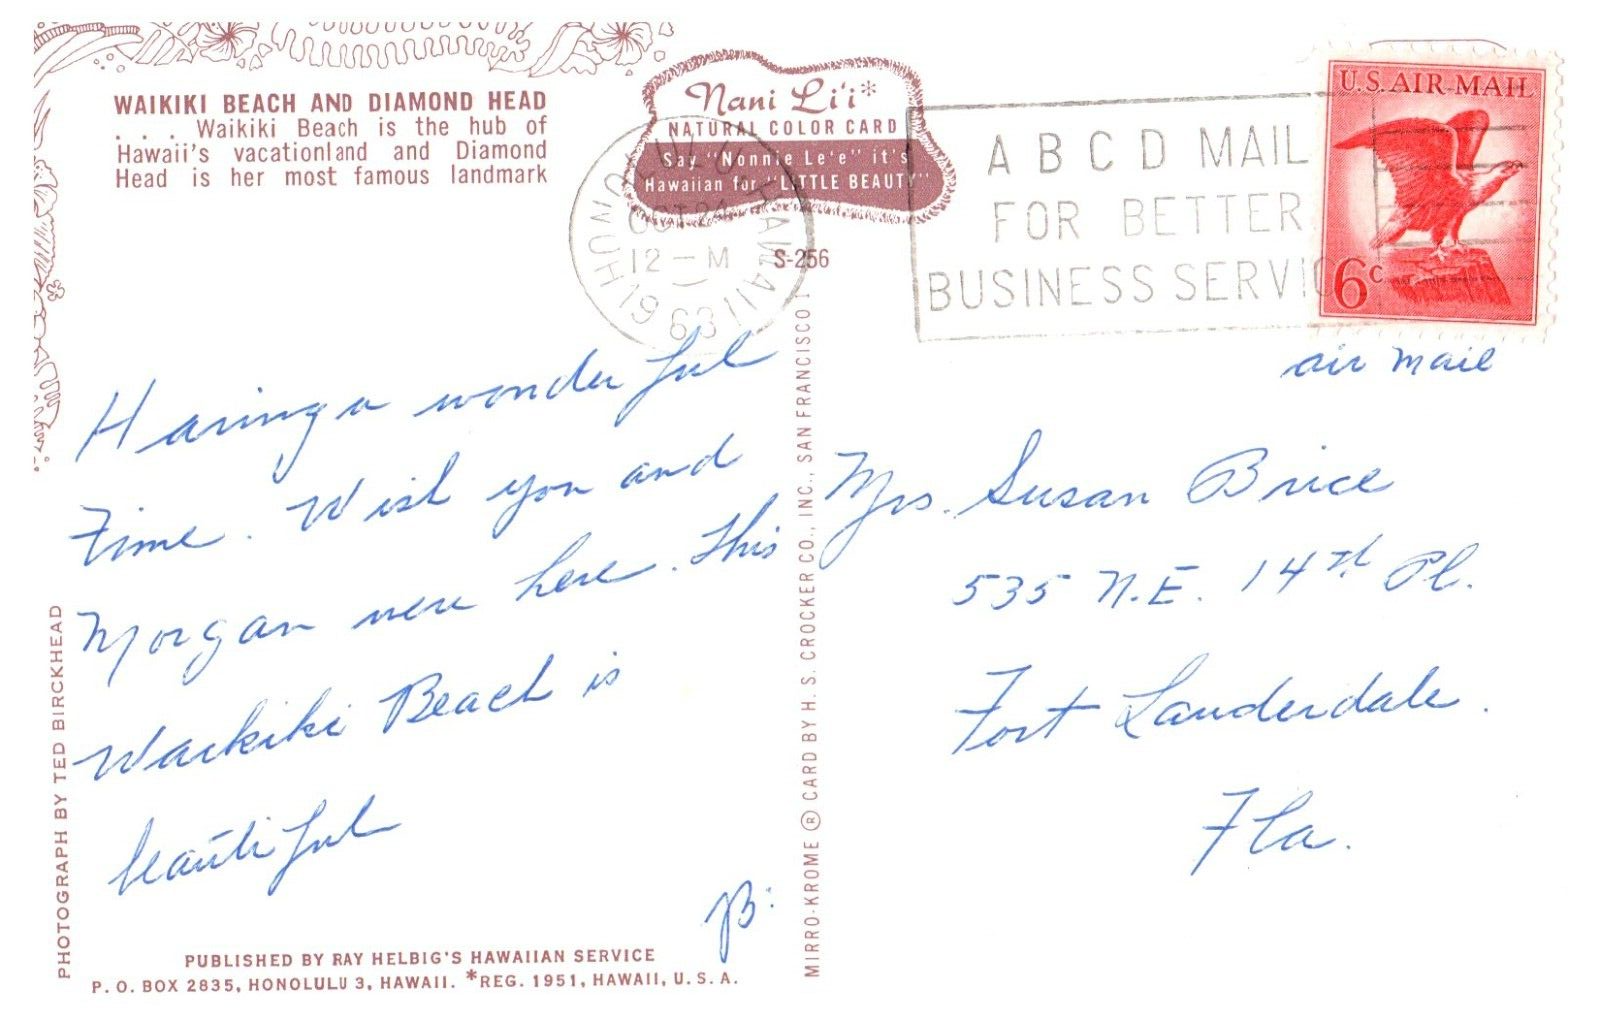 WAIKIKI BEACH AND DIAMOND HEAD
. . . Waikiki Beach is the hub of
Hawaii's vacationland and Diamond
Head is her most famous landmark
Nani Li'i*
NATURAL COLOR CARD
Say "Nonnie Le'e" it's
Hawaiian for "LITTLE BEAUTY"
S-256
HONOLULU, HAWAII
OCT 24
12 — M
1963
A B C D MAIL
FOR BETTER
BUSINESS SERVIC
U.S. AIR MAIL
6c
air mail
Having a wonderful
time. Wish you and
Morgan were here. This
Waikiki Beach is
beautiful
B.
Mrs. Susan Brice
535 N.E. 14th Pl.
Fort Lauderdale.
Fla.
PHOTOGRAPH BY TED BIRCKHEAD
MIRRO-KROME ® CARD BY H. S. CROCKER CO., INC., SAN FRANCISCO 1
PUBLISHED BY RAY HELBIG'S HAWAIIAN SERVICE
P. O. BOX 2835, HONOLULU 3, HAWAII. *REG. 1951, HAWAII, U. S. A.